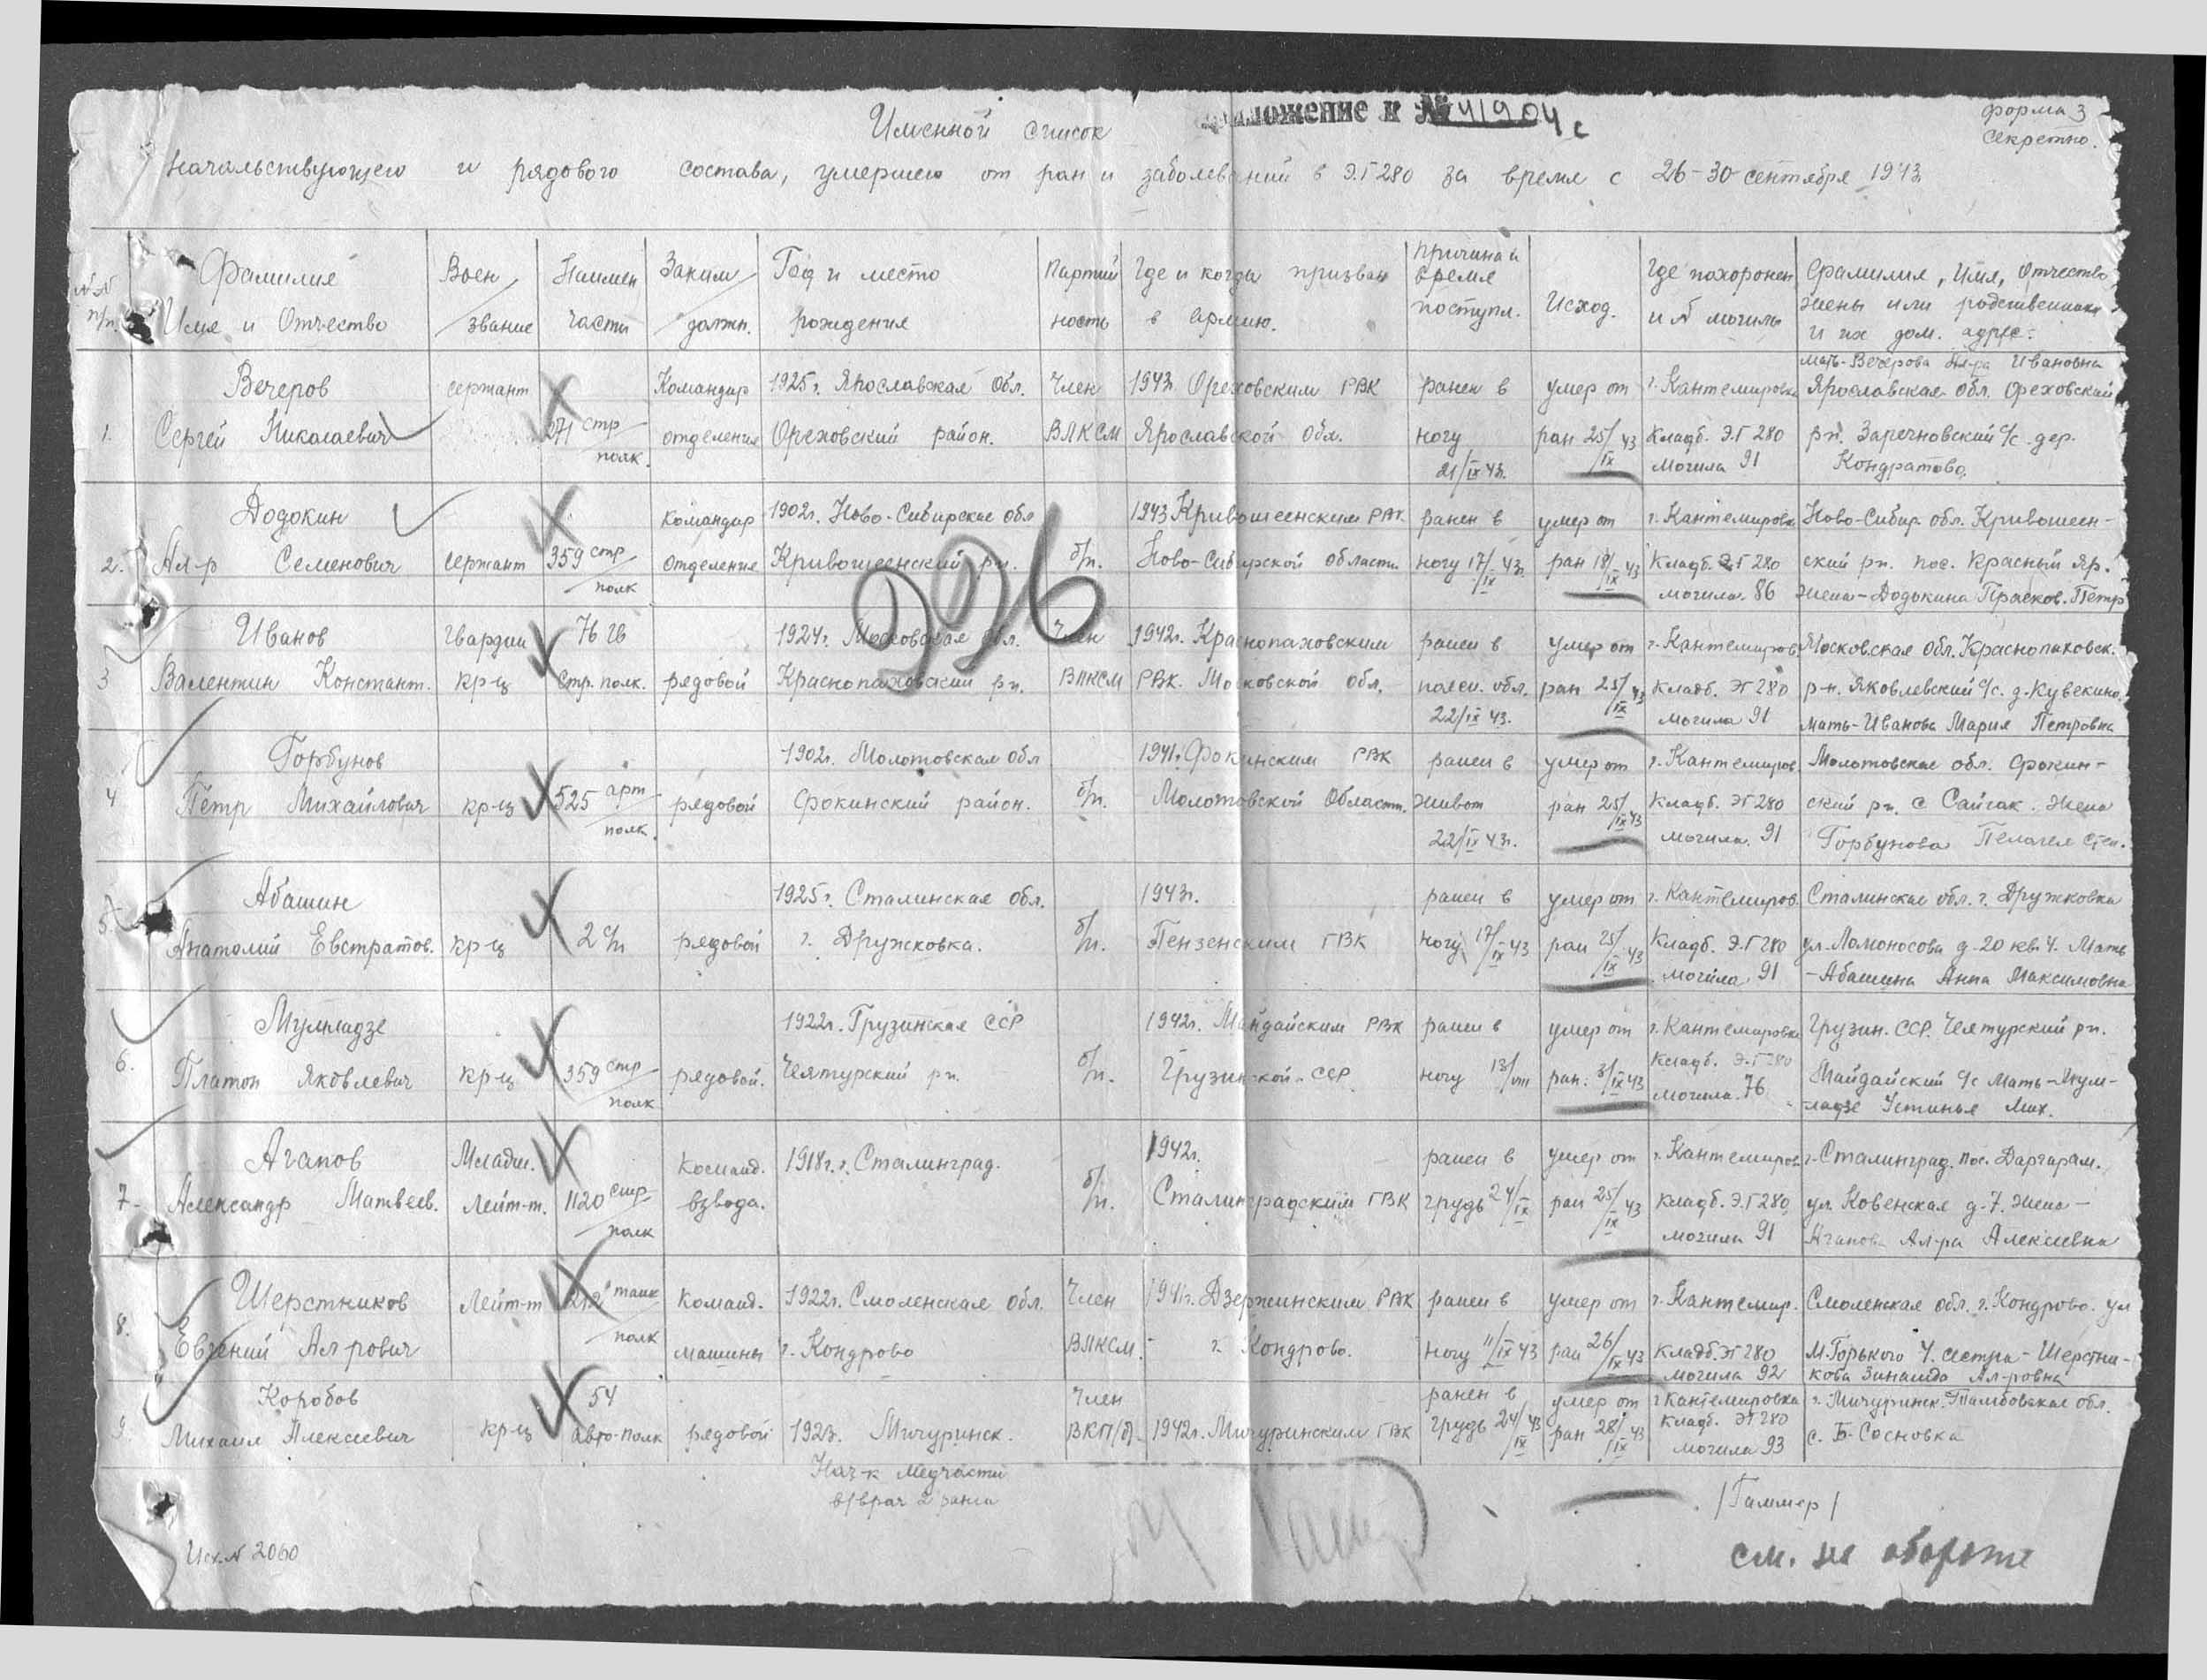 Именной список
ложение к № 41904 с
форма 3
Секретно.
начальствующего и рядового состава, умершего от ран и заболеваний в Э.Г 280 за время с 26-30 сентября 1943
№№ п/п.
Фамилия
Имя и Отчество
Воен/звание
Наимен части
Заним/должн.
Год и место
рождения
Партийность
Где и когда призван
в армию.
Причина и
время
поступл.
Исход.
Где похоронен
и № могилы
Фамилия, Имя, Отчество
жены или родственника
и их дом. адрес.
1.
Вечеров
Сергей Николаевич
сержант
271 стр/полк.
Командир
отделения
1925г. Ярославская Обл.
Ореховский район.
Член
ВЛКСМ
1943г. Ореховским РВК
Ярославской Обл.
ранен в
ногу
21/IX 43г.
умер от
ран 25/IX 43
г. Кантемировка
Кладб. Э.Г 280
Могила 91
мать-Вечерова Ал-ра Ивановна
Ярославская обл. Ореховский
рн. Заречновский с/с дер.
Кондратово.
2.
Додокин
Ал-р Семенович
сержант
359 стр/полк
командир
отделения
1902г. Ново-Сибирская обл
Кривошеенский рн.
б/п.
1943 Кривошеенским РВК
Ново-Сибирской области.
ранен в
ногу 17/IX 43г.
умер от
ран 18/IX 43
г. Кантемировка
Кладб. ЭГ 280
могила 86
Ново-Сибир. обл. Кривошеен-
ский рн. пос. Красный Яр.
Жена-Додокина Прасков. Петр
926
3
Иванов
Валентин Констант.
Гвардии
кр-ц
76 гв
Стр. полк.
рядовой
1924г. Московская обл.
Краснопаховский рн.
Член
ВЛКСМ
1942г. Краснопаховским
РВК. Московской обл.
ранен в
поясн. обл.
22/IX 43.
умер от
ран 25/IX 43
г. Кантемиров
кладб. ЭГ 280
могила 91
Московская Обл. Краснопаховск.
р-н. Яковлевский с/с. д. Кувекино.
мать-Иванова Мария Петровна
4
Горбунов
Пётр Михайлович
кр-ц
525 арт/полк.
рядовой
1902г. Молотовская обл
Фокинский район.
б/п.
1941г. Фокинским РВК
Молотовской Области.
ранен в
живот
22/IX 43г.
умер от
ран 25/IX 43
г. Кантемиров.
Кладб. ЭГ 280
могила. 91
Молотовская обл. Фокин-
ский рн. с Сайгак. Жена
Горбунова Пелагея Степ.
5
Абашин
Анатолий Евстратов.
кр-ц
2 с/п
рядовой
1925г. Сталинская обл.
г. Дружковка.
б/п.
1943г.
Пензенским ГВК
ранен в
ногу 17/IX 43
умер от
ран 25/IX 43
г. Кантемиров.
Кладб. Э.Г 280
могила 91
Сталинская обл. г. Дружковка
ул. Ломоносова д-20 кв. 4. Мать
-Абашина Анна Максимовна
6.
Мумладзе
Платон Яковлевич
кр-ц
359 стр/полк
рядовой.
1922г. Грузинская ССР
Чеятурский рн.
б/п.
1942г. Майдайским РВК
Грузинской ССР
ранен в
ногу 13/VIII
умер от
ран. 3/IX 43
г. Кантемировка
Кладб. Э.Г 280
могила. 76
Грузин. ССР. Чеятурский рн.
Майдайский с/с Мать-Мум-
ладзе Устинья Мих.
7-
Агапов
Александр Матвеев.
Младш.
Лейт-т.
1120 стр/полк
команд.
взвода.
1918г. г. Сталинград.
б/п.
1942г.
Сталинградским ГВК
ранен в
грудь 24/IX
умер от
ран 25/IX 43
г. Кантемиров
кладб. Э.Г 280
могила 91
г. Сталинград. пос. Даргарам.
ул. Ковенская д-7. жена-
Агапова Ал-ра Алексеевна
8.
Шерстников
Евгений Ал-рович
Лейт-т
212 танк/полк
команд.
машины
1922г. Смоленская обл.
г. Кондрово
Член
ВЛКСМ.
1941г. Дзержинским РВК
г. Кондрово.
ранен в
ногу 11/IX 43
умер от
ран 26/IX 43
г. Кантемир.
кладб. ЭГ 280
могила 92
Смоленская обл. г. Кондрово. ул
М. Горького 4. сестра-Шерстни-
кова Зинаида Ал-ровна
9.
Коробов
Михаил Алексеевич
кр-ц
54
авто-полк
рядовой
1923. Мичуринск.
Член
ВКП/б/.
1942г. Мичуринским ГВК
ранен в
грудь 24/IX 43
умер от
ран 28/IX 43
г Кантемировка
Кладб. ЭГ 280
могила 93
г. Мичуринск. Тамбовская обл.
с. Б-Сосновка
Нач-к медчасти
в/врач 2 ранга
/Гаммер/
Исх. № 2060
см. на обороте